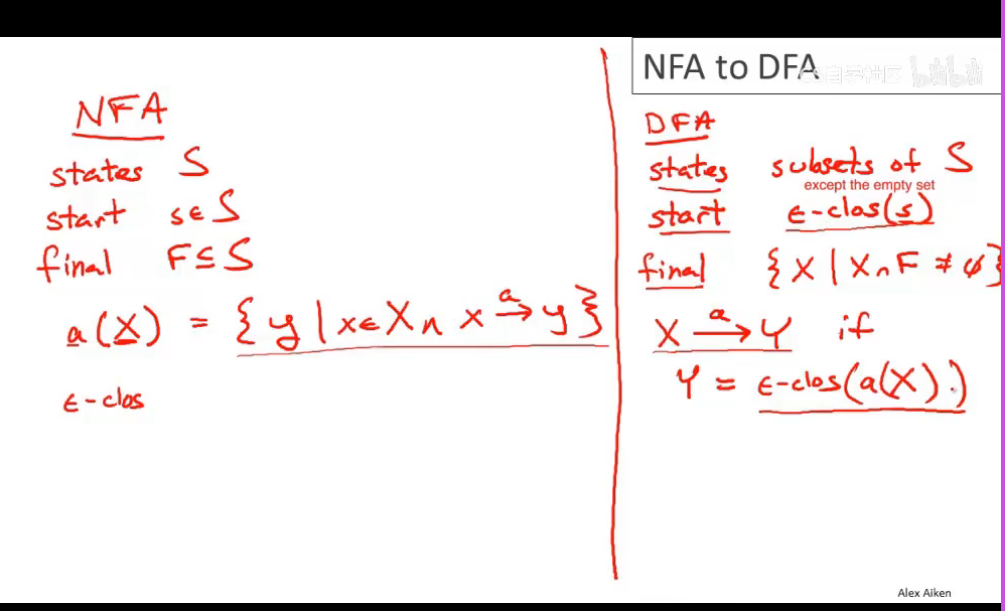 NFA
states S
start s∈S
final F⊆S
a(X) = {y | x∈X ∧ x →a y}
ϵ-clos
NFA to DFA
DFA
states subsets of S
except the empty set
start ϵ-clos(s)
final {X | X∩F ≠ ϕ}
X →a Y if
Y = ϵ-clos(a(X))
Alex Aiken